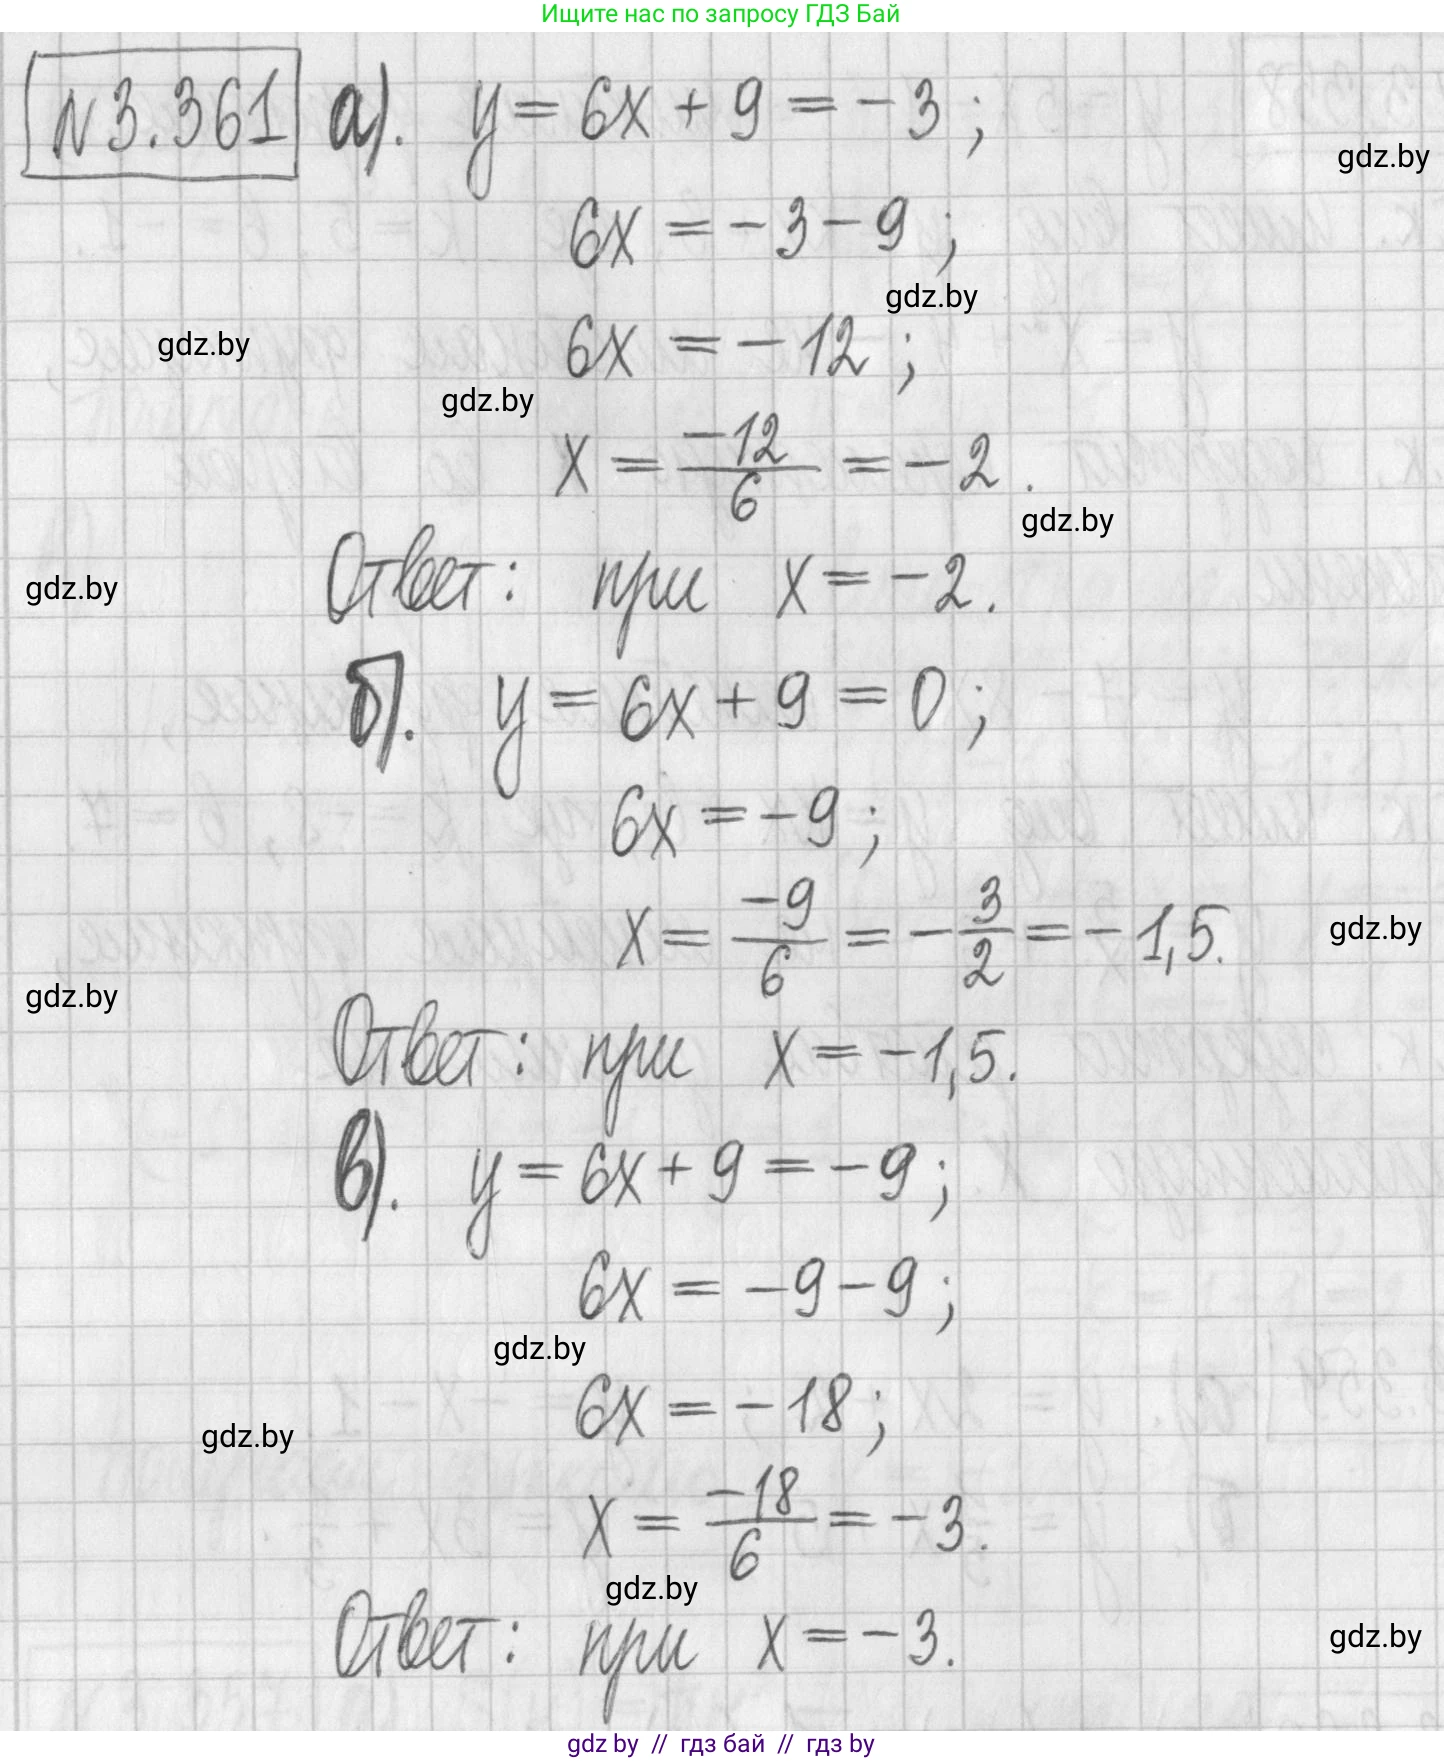 Ищите нас по запросу ГДЗ Бай
N3.361 а). y = 6x + 9 = -3;
gdz.by
6x = -3 - 9;
gdz.by
6x = -12;
gdz.by
gdz.by
x = -12/6 = -2.
gdz.by
Ответ: при x = -2.
gdz.by
б). y = 6x + 9 = 0;
6x = -9;
x = -9/6 = -3/2 = -1,5.
gdz.by
gdz.by
Ответ: при x = -1,5.
в). y = 6x + 9 = -9;
6x = -9 - 9;
gdz.by
6x = -18;
gdz.by
x = -18/6 = -3.
gdz.by
Ответ: при x = -3.
gdz.by
gdz by // гдз бай // гдз by